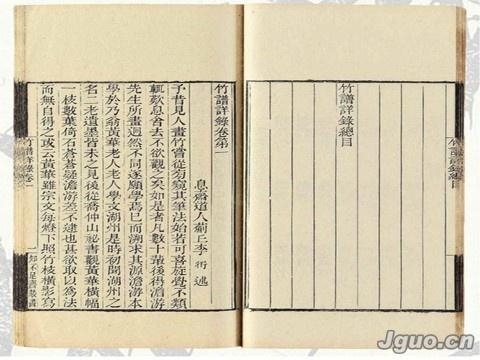 竹譜詳錄總目
竹譜詳錄總目
竹譜詳錄卷第一
息齋道人薊丘李衎述
予昔見人畫竹曾從旁窺其筆法始若可喜旋覺不類
輒歎息舍去不欲觀之矣如是者凡數十輩後得澹游
先生所畫迥然不同遂願學焉已而溯求其源澹游
學於乃翁黃華老人老人學文湖州是時初聞湖州之
名二老遺墨皆未之見後從喬仲山祕書觀黃華橫幅
一枝數葉倚石蒼蒼疑澹游差不逮也其欲取以爲法
而無自得之或云黃華雖宗文每燈下照竹枝橫影寫
竹譜詳錄卷一 一 知不足齋叢書
Jguo.cn